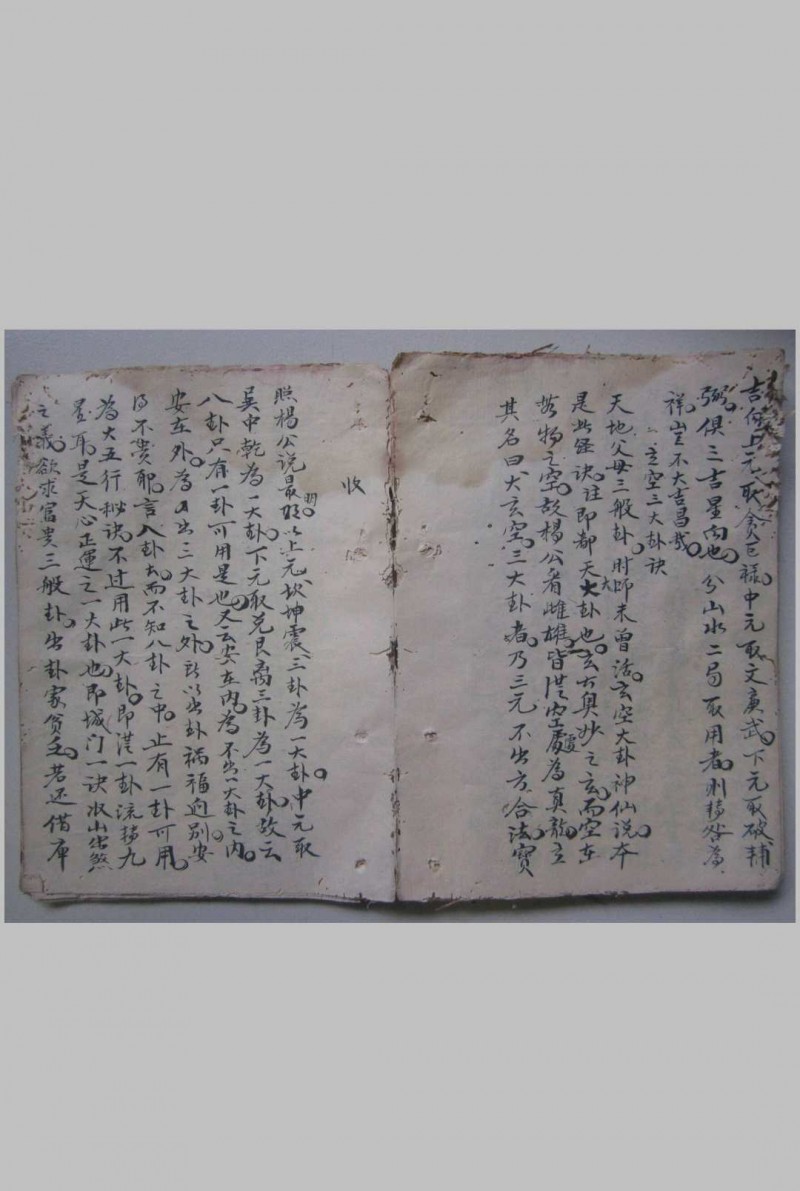 吉何上元取貪巨祿中元取文廉武下元取破輔
弼俱三吉星向也分山水二局取用者則移咎為
祥豈不大吉昌哉
玄空三大卦訣
天地父母三般卦时师未曾話玄空大卦神仙说本
是此经诀注即都天大卦也玄大奥妙之玄而空在
物之空故楊公者雌雄皆從空處為真龍立
其名曰大玄空三大卦者乃三元不出方合法寶
收
照楊公说最明以上元坎坤震三卦為一大卦中元取
巽中乾為一大卦下元取兑艮离三卦為一大卦故云
八卦只有一卦可用是也又云安在内為不出一大卦之内
安在外為出三大卦之外所以出卦禍福迥别安
得不贵耶言八卦而不知八卦之中止有一卦可用
為大五行秘诀不过用此一大卦即從一卦流轉九
星耳是天心正運之一大卦也即城门一诀水山
之義欲求富贵三般卦出卦家貧乏若还借库